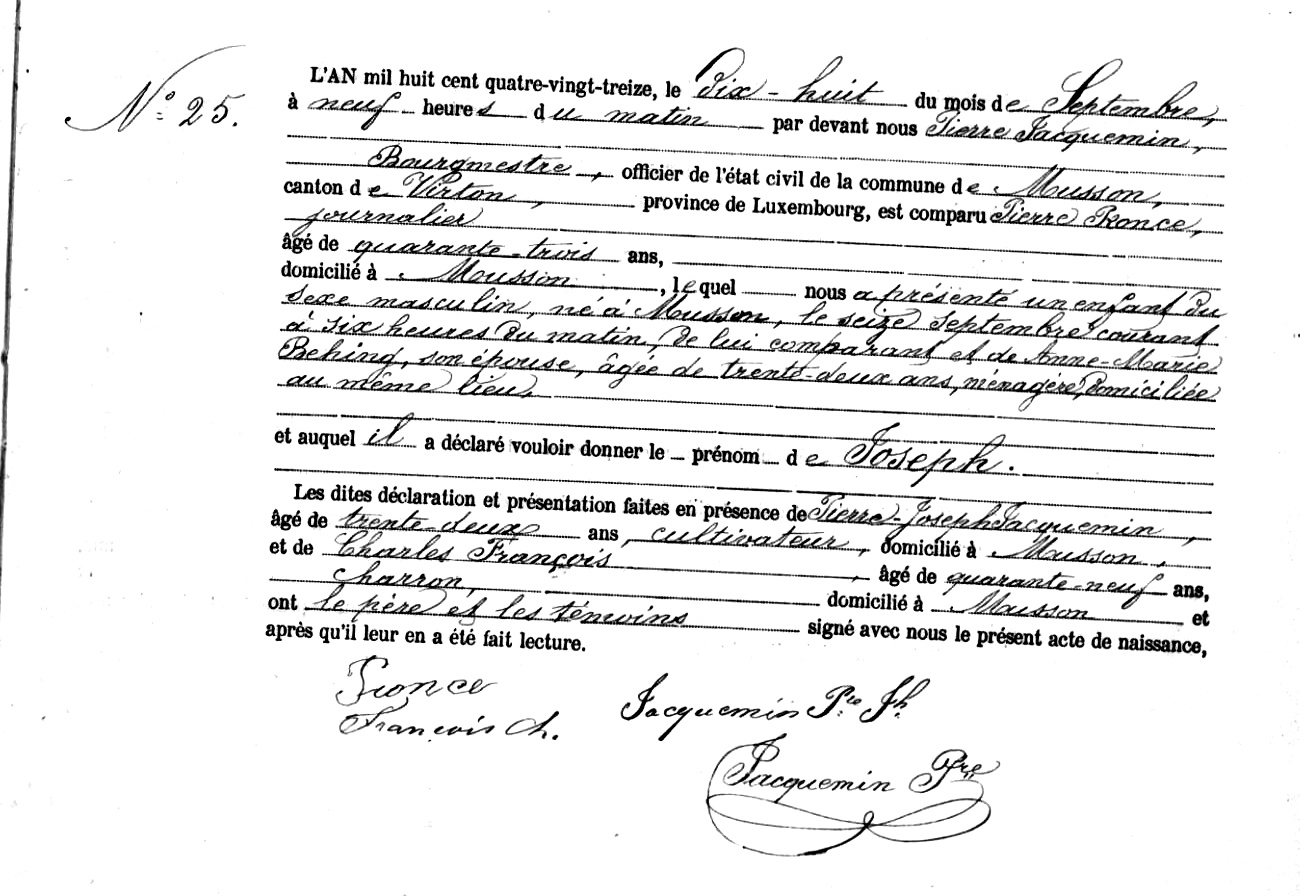 N° 25.
L'AN mil huit cent quatre-vingt-treize, le Dix-huit du mois de Septembre,
à neuf heures du matin par devant nous Pierre Jacquemin,
Bourgmestre, officier de l'état civil de la commune de Musson,
canton de Virton, province de Luxembourg, est comparu Pierre Ronce,
journalier
âgé de quarante-trois ans,
domicilié à Musson, lequel nous a présenté un enfant du
sexe masculin, né à Musson, le seize septembre courant
à six heures du matin, de lui comparant et de Anne-Marie
Behing, son épouse, âgée de trente-deux ans, ménagère, domiciliée
au même lieu,
et auquel il a déclaré vouloir donner le prénom de Joseph.
Les dites déclaration et présentation faites en présence de Pierre-Joseph Jacquemin,
âgé de trente-deux ans, cultivateur, domicilié à Musson,
et de Charles François, âgé de quarante-neuf ans,
charron, domicilié à Musson et
ont le père et les témoins signé avec nous le présent acte de naissance,
après qu'il leur en a été fait lecture.
Ronce Jacquemin Pre Jh.
François Ch.
Jacquemin Pre